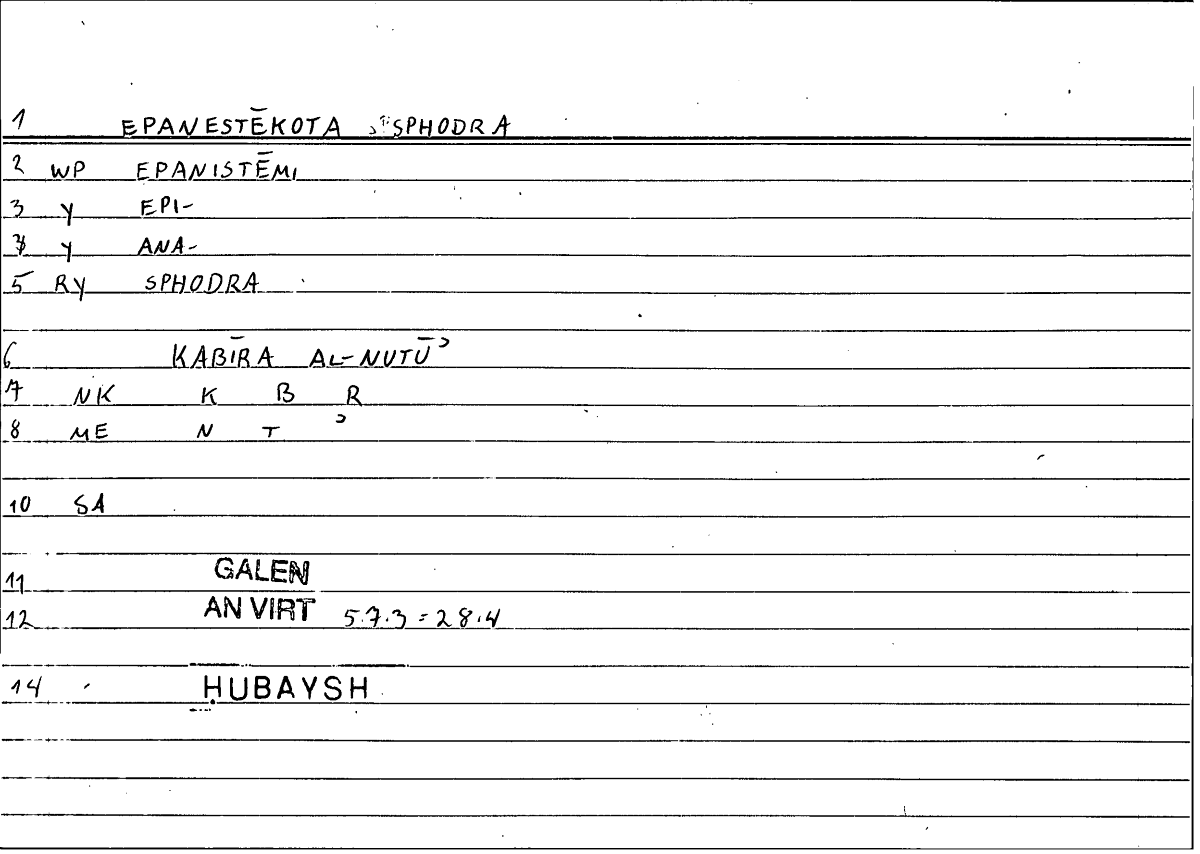 1 EPANESTĒKOTA SPHODRA
2 WP EPANISTĒMI
3 Y EPI-
4 Y ANA-
5 RY SPHODRA
6 KABĪRA AL-NUTŪʾ
7 NK K B R
8 ME N T ʾ
10 SA
11 GALEN
12 AN VIRT 5.7.3 = 28.4
14 ḤUBAYSH